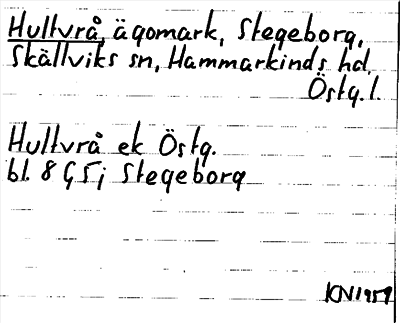 Hultvrå, ägomark, Stegeborg,
Skällviks sn, Hammarkinds hd,
Östg. l.
Hultvrå ek Östg.
bl. 8 G5j Stegeborg
KN1959